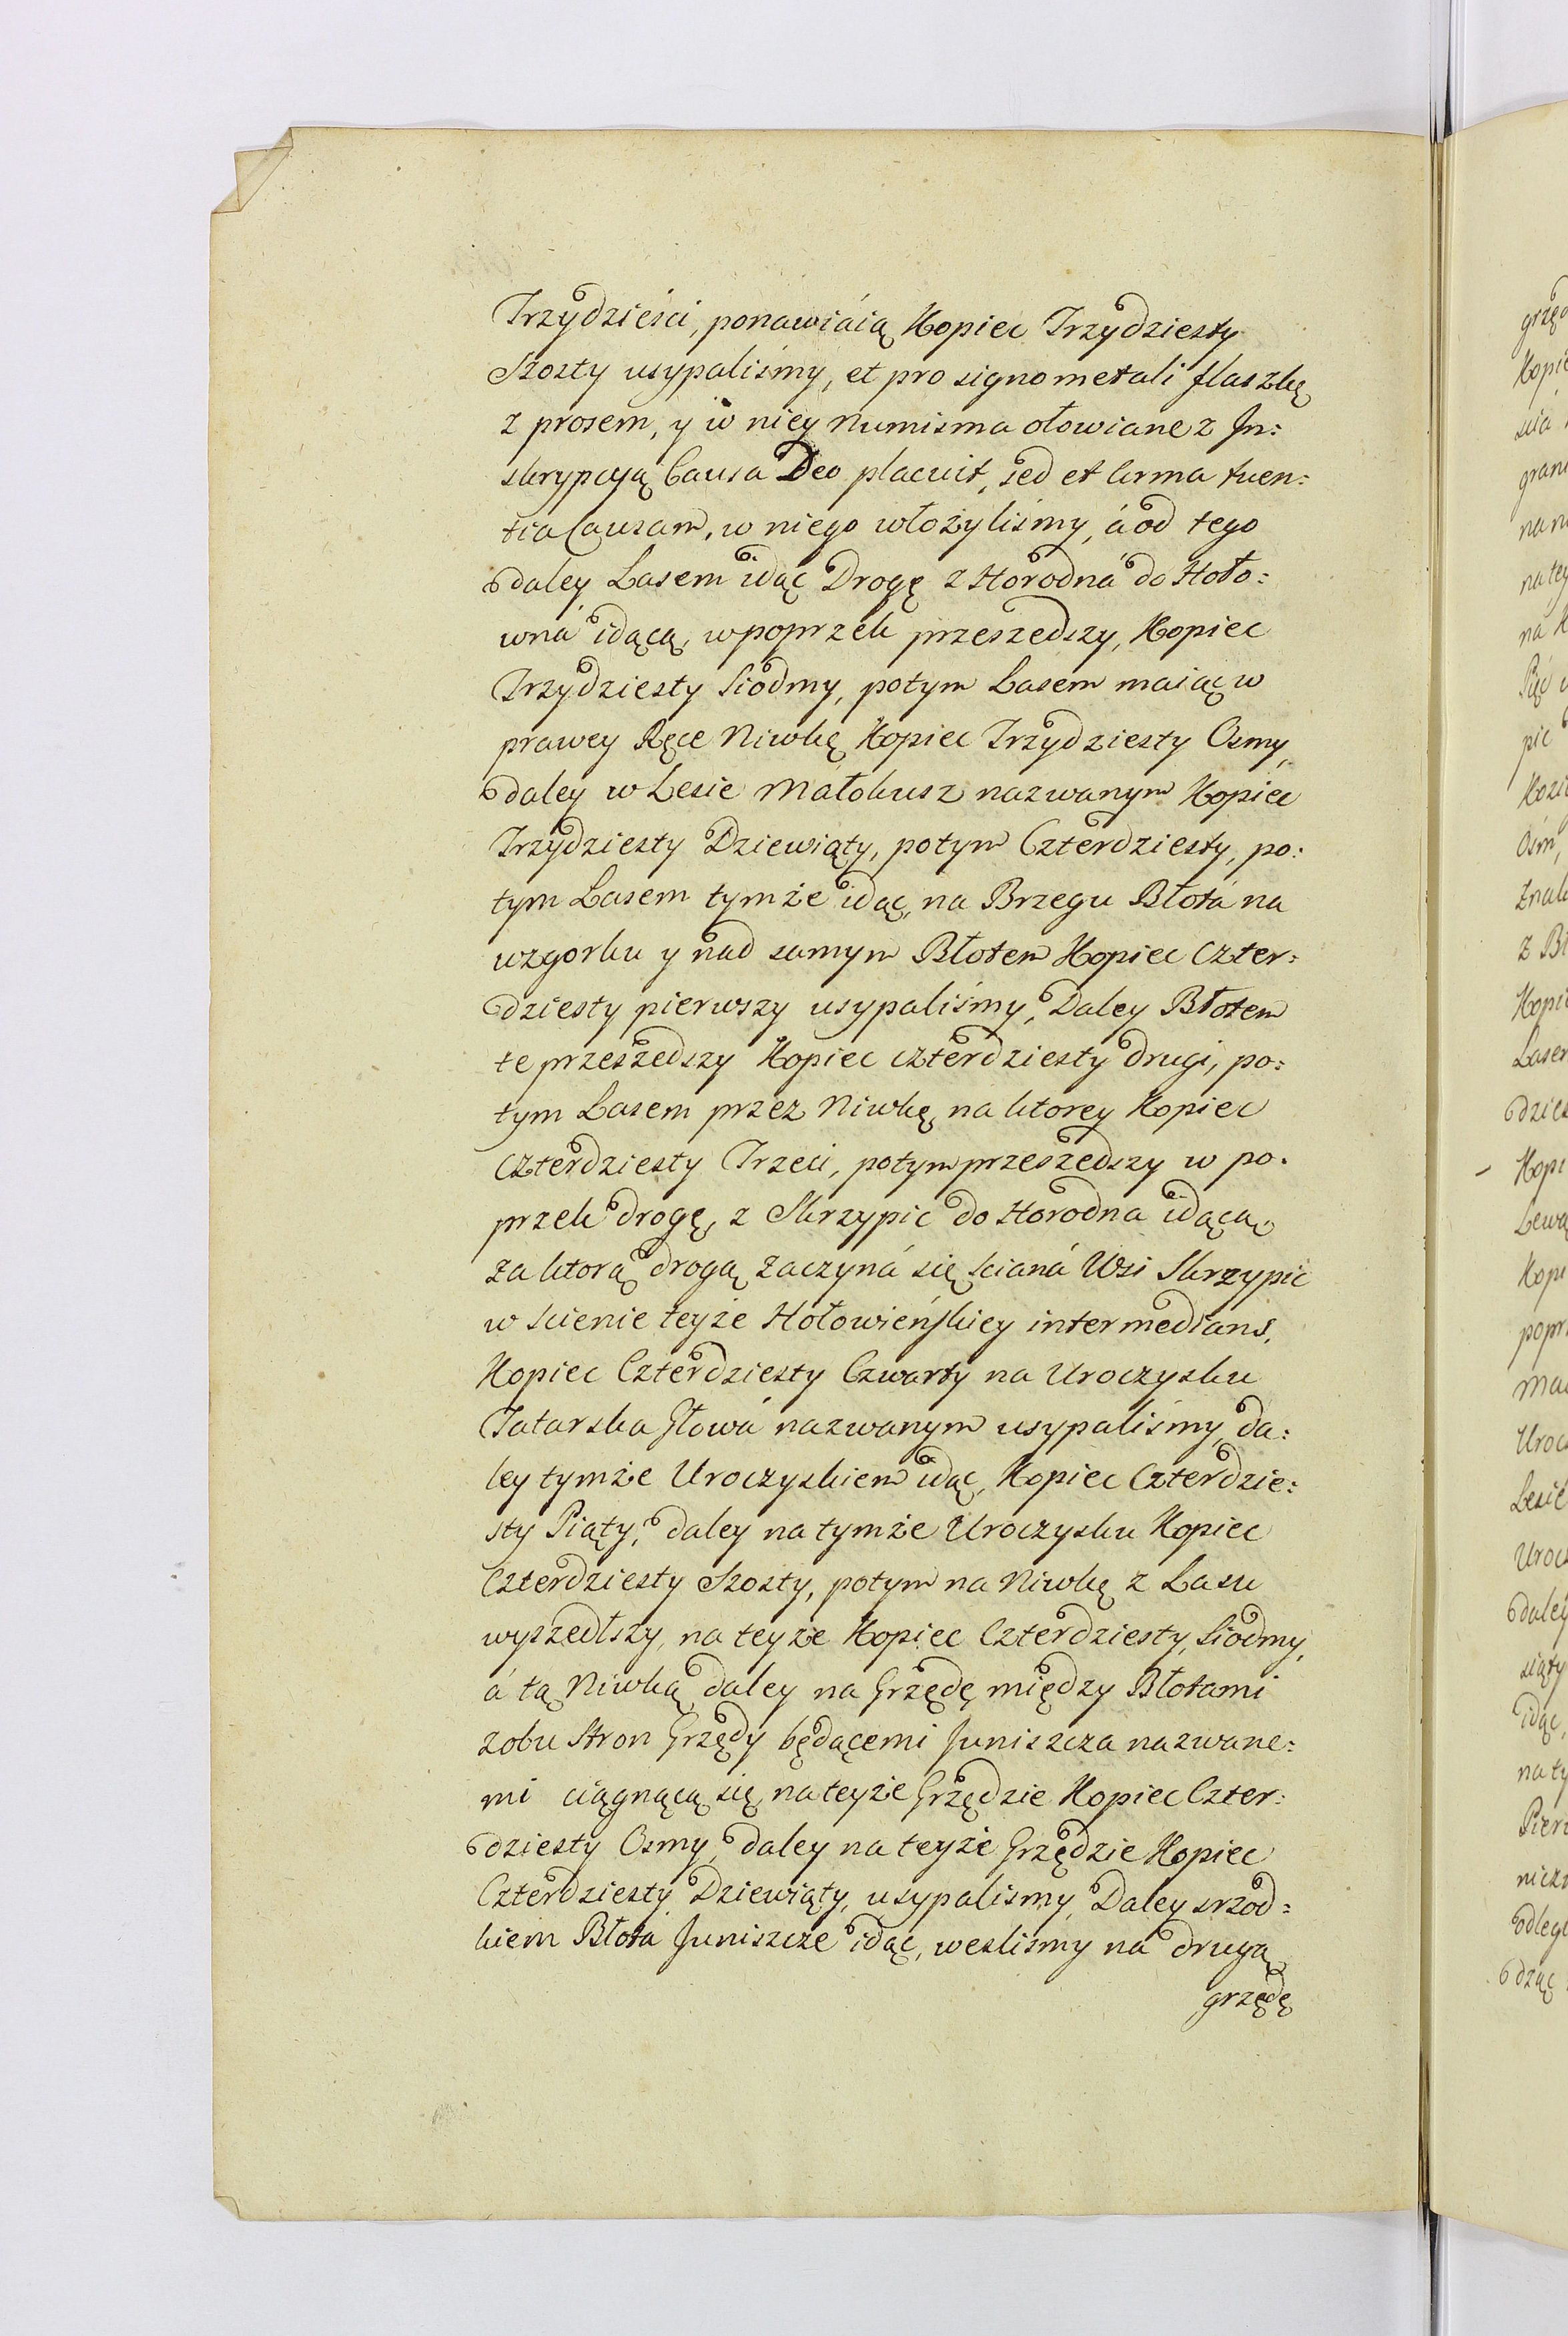 Trzydzieści, ponawiáią Kopiec Trzydziesty
Szosty usypaliśmy, et pro signo metali flaszkę
z prosem, y w niey Numisma ołowiane z In:
skrypcyą Causa Deo placuit, sed et Arma tuen:
tia Causam, w niego włożyliśmy, á od tego
daley Lasem idąc Drogę z Horodná do Hoło:
wná idącą, wpoprzek przeszedszy, Kopiec
Trzydziesty Siodmy, potym Lasem maiąc w
prawey Ręce Niwkę Kopiec Trzydziesty Osmy,
daley w Lesie Małokusz nazwanym Kopiec
Trzydziesty Dziewiąty, potym Czterdziesty, po:
tym Lasem tymże idąc, na Brzegu Błotá na
wzgorku y nad samym Błotem Kopiec Czter:
dziesty pierwszy usypaliśmy, Daley Błotem
te przeszedszy Kopiec czterdziesty drugi, po:
tym Lasem przez Niwkę, na ktorey Kopiec
Czterdziesty Trzeci, potym przeszedszy w po:
przek drogę, z Skrzypic do Horodna idącą,
za ktorą drogą zaczyná się scianá Wsi Skrzypic
w scienie teyże Hołowieńskiey intermedians,
Kopiec Czterdziesty Czwarty na Uroczysku
Tatarska Głowá nazwanym usypaliśmy, da:
ley tymże Uroczyskiem idąc, Kopiec Czterdzie:
sty Piąty, daley na tymże Uroczysku Kopiec
Czterdziesty Szosty, potym na Niwkę z Lasu
wyszedłszy, na teyże Kopiec Czterdziesty Siodmy,
á tą Niwką daley na Grzędę między Błotami
z obu Stron Grzędy będącemi Juniszcza nazwane:
mi ciągnącą się, na teyże Grzędzie Kopiec Czter:
dziesty Osmy, daley na teyże Grzędzie Kopiec
Czterdziesty Dziewiąty, usypalismy, Daley srzod:
kiem Błotá Juniszcze idąc, weslismy na drugą
grzędę